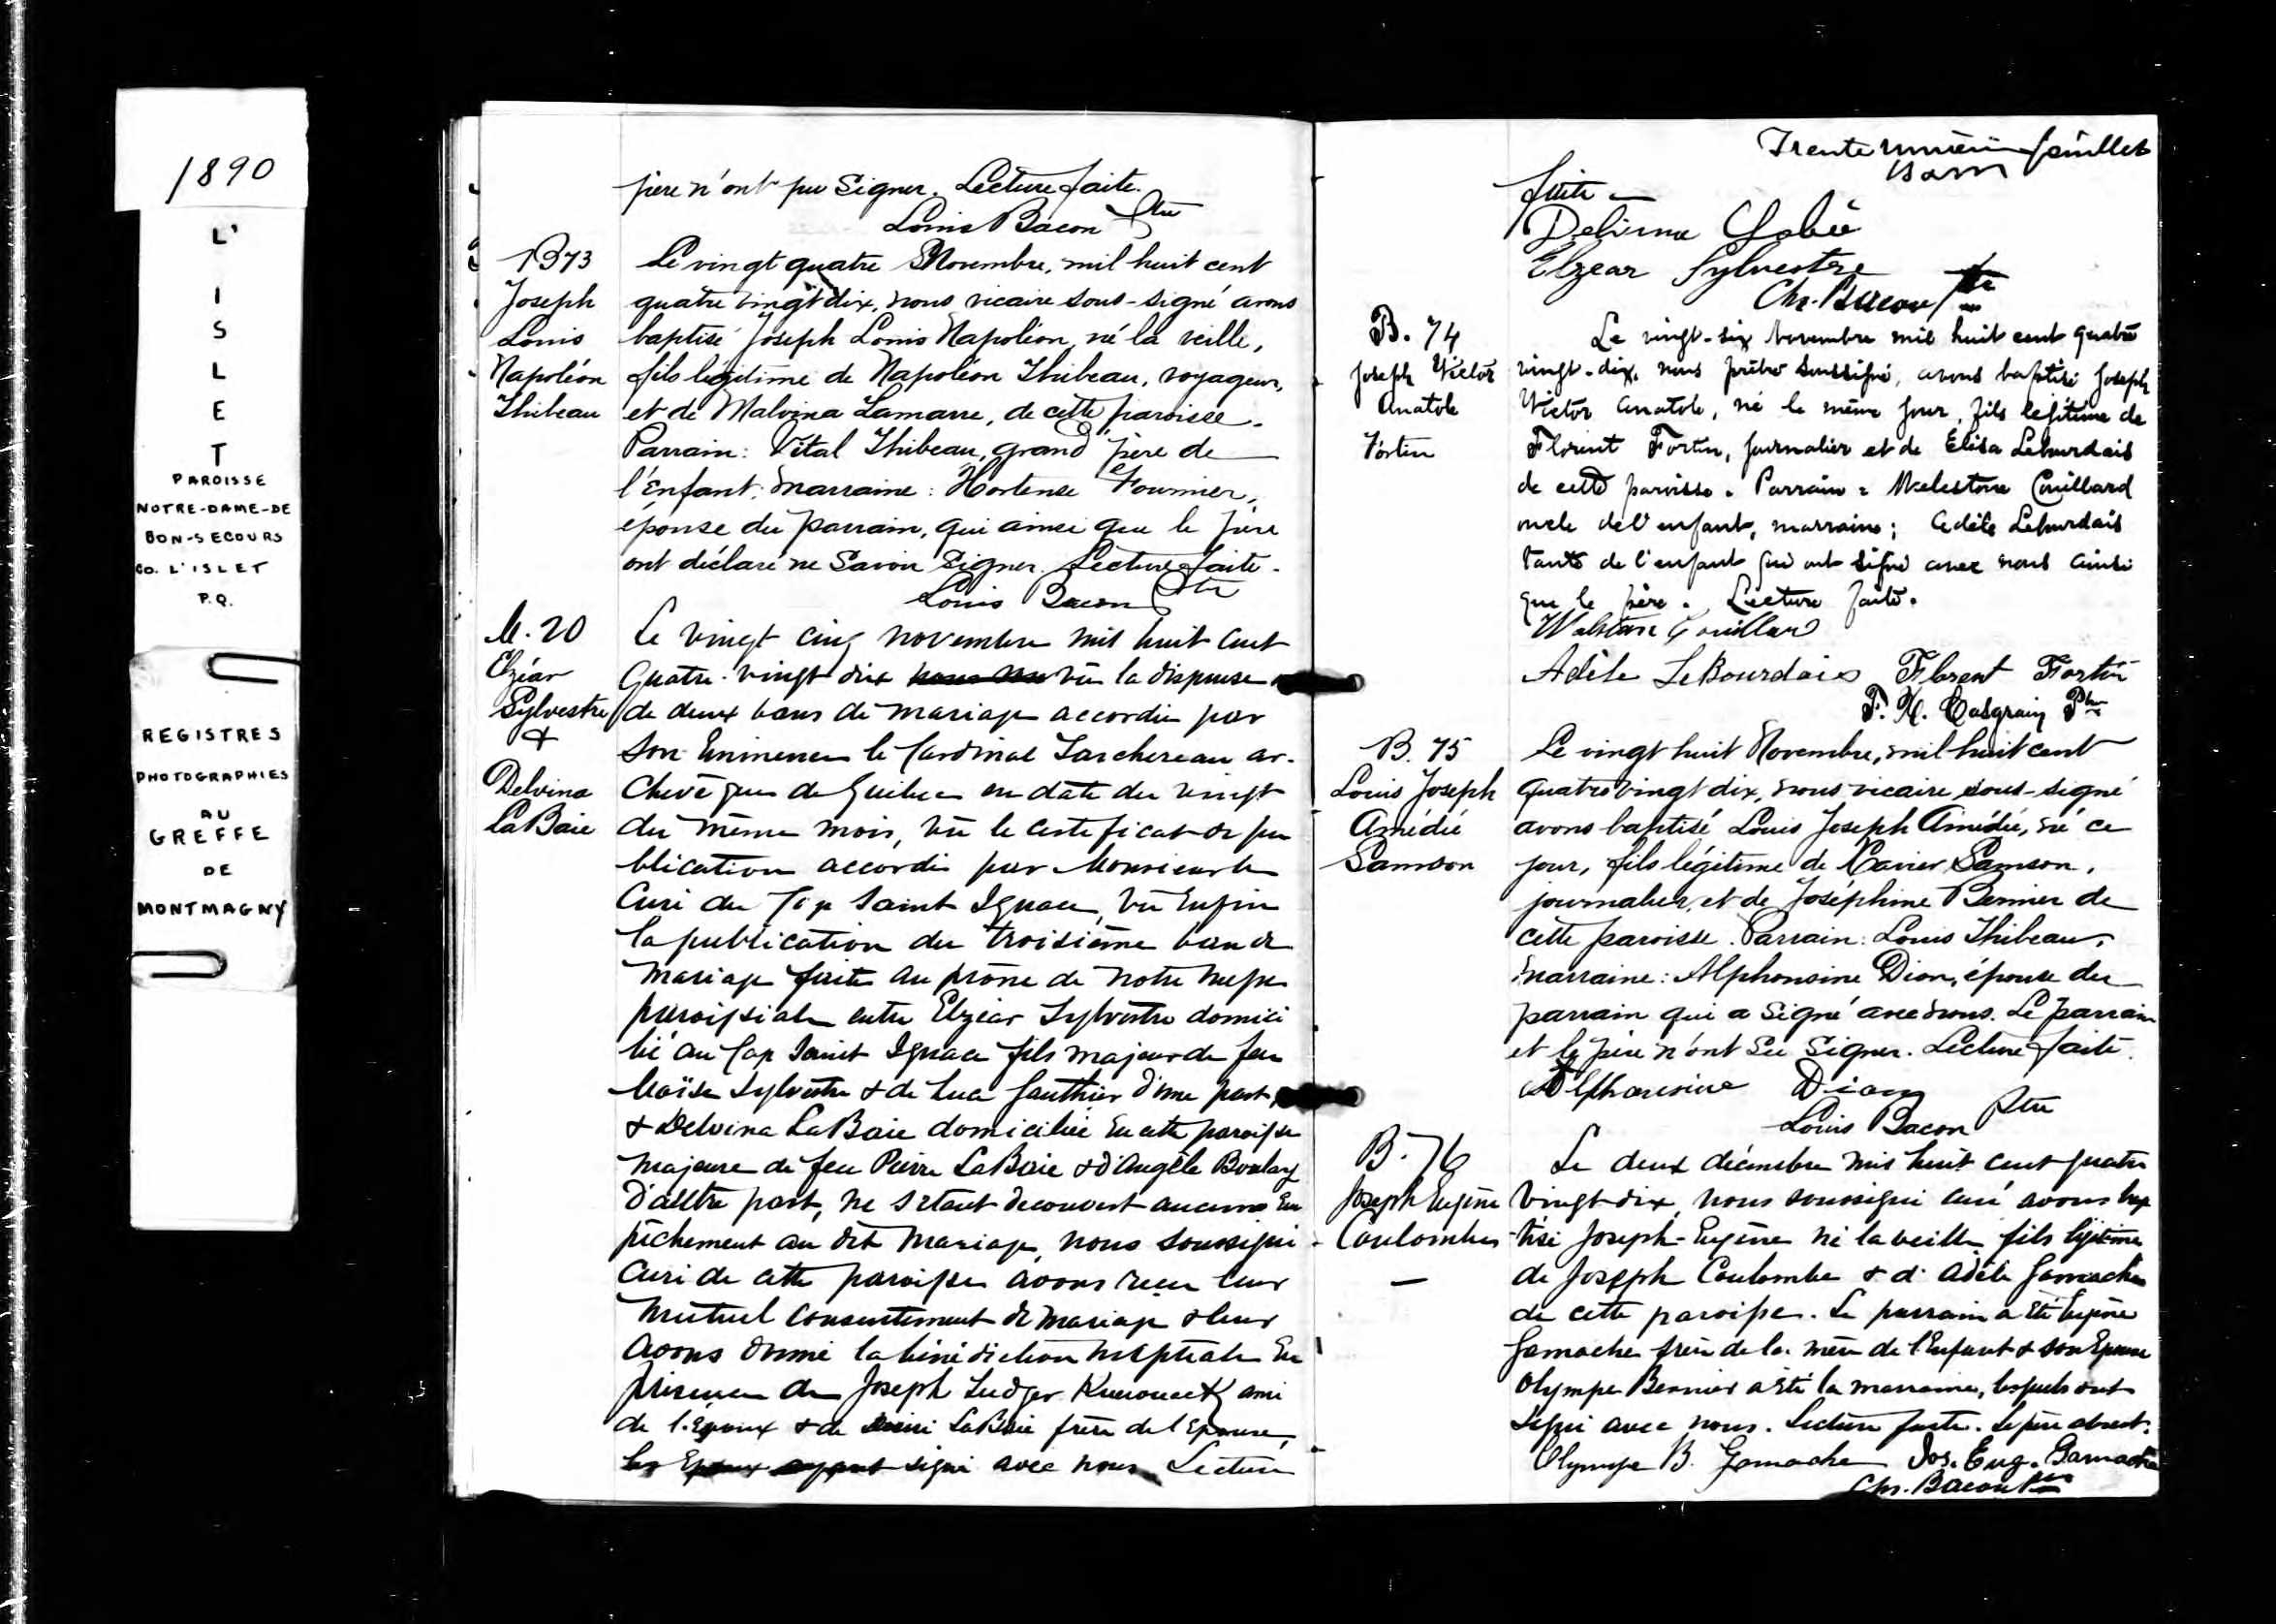 1890
L'
I
S
L
E
T
PAROISSE
NOTRE-DAME-DE
BON-SECOURS
CO. L'ISLET
P.Q.
REGISTRES
PHOTOGRAPHIES
AU
GREFFE
DE
MONTMAGNY
père n'ont pu Signer. Lecture faite.
Louis Bacon Ptre
B 73
Joseph
Louis
Napoléon
Thibeau
Le vingt quatre Novembre, mil huit cent
quatre vingt dix, nous vicaire sous-signé avons
baptisé Joseph Louis Napoléon, né la veille,
fils légitime de Napoléon Thibeau, voyageur,
et de Malvina Lamarre, de cette paroisse.
Parrain: Vital Thibeau, grand père de
l'Enfant; marraine: Hortense Fournier,
épouse du parrain, qui ainsi que le père
ont déclaré ne Savoir Signer. Lecture faite.
Louis Bacon Ptre
M. 20
Elzéar
Sylvestre
&
Delvina
LaBaie
Le vingt cinq novembre mil huit cent
Quatre-vingt dix vû la dispense
de deux bans de mariage accordée par
Son Eminence le Cardinal Taschereau ar-
chevêque de Québec en date du vingt
du même mois, vû le certificat de pu
blication accordé par Monsieur le
Curé du Cap Saint Ignace, vû enfin
la publication du troisième ban de
mariage faite au prône de notre messe
paroissiale entre Elzéar Sylvestre domici
lié au Cap Saint Ignace fils majeur de feu
Moïse Sylvestre & de Luce Gauthier d'une part,
& Delvina LaBaie domiciliée en cette paroisse
majeure de feu Pierre LaBaie & d'Angèle Boulay
d'autre part, ne s'étant découvert aucun em
pêchement au dit mariage, nous soussigné
Curé de cette paroisse avons reçu leur
mutuel consentement de mariage & leur
avons donné la bénédiction nuptiale en
présence de Joseph Ludger Kuerouack ami
de l'Epoux & de LaBaie frère de l'Epouse,
les Epoux ayant signé avec nous Lecture
Trente unième feuillet
faite -
Delvina Labée
Elzear Sylvestre
Chs. Bacon Ptre
B. 74
Joseph Victor
Anatole
Fortin
Le vingt-six novembre mil huit cent quatre
vingt-dix, nous prêtre soussigné, avons baptisé Joseph
Victor Anatole, né le même jour, fils légitime de
Florent Fortin, journalier et de Elisa Lebourdais
de cette paroisse. Parrain: Couillard
oncle de l'enfant, marraine; Adèle Lebourdais
tante de l'enfant qui ont signé avec nous ainsi
que le père. Lecture faite.
Couillard
Adèle LeBourdais Florent Fortin
F. X. Casgrain Ptre
B. 75
Louis Joseph
Amédié
Samson
Le vingt huit Novembre, mil huit cent
quatre vingt dix, nous vicaire sous-signé
avons baptisé Louis Joseph Amédié, né ce
jour, fils légitime de Xavier Samson,
journalier, et de Joséphine Bernier de
cette paroisse. Parrain: Louis Thibeau,
marraine: Alphonsine Dion, épouse du
parrain qui a Signé avec nous. Le parrain
et le père n'ont Su Signer. Lecture faite.
Alphonsine Dion
Louis Bacon Ptre
B. 76
Joseph Eugène
Coulombe
Le deux décembre mil huit cent quatre
vingt-dix, nous soussigné curé avons bap
tisé Joseph-Eugène né la veille fils légitime
de Joseph Coulombe & d'Adèle Gamache
de cette paroisse. Le parrain a été Eugène
Gamache frère de la mère de l'Enfant & son Epouse
Olympe Bernier a été la marraine, lesquels ont
signé avec nous. Lecture faite. Le père absent.
Olympe B. Gamache Jos. Eug. Gamache
Chs. Bacon Ptre